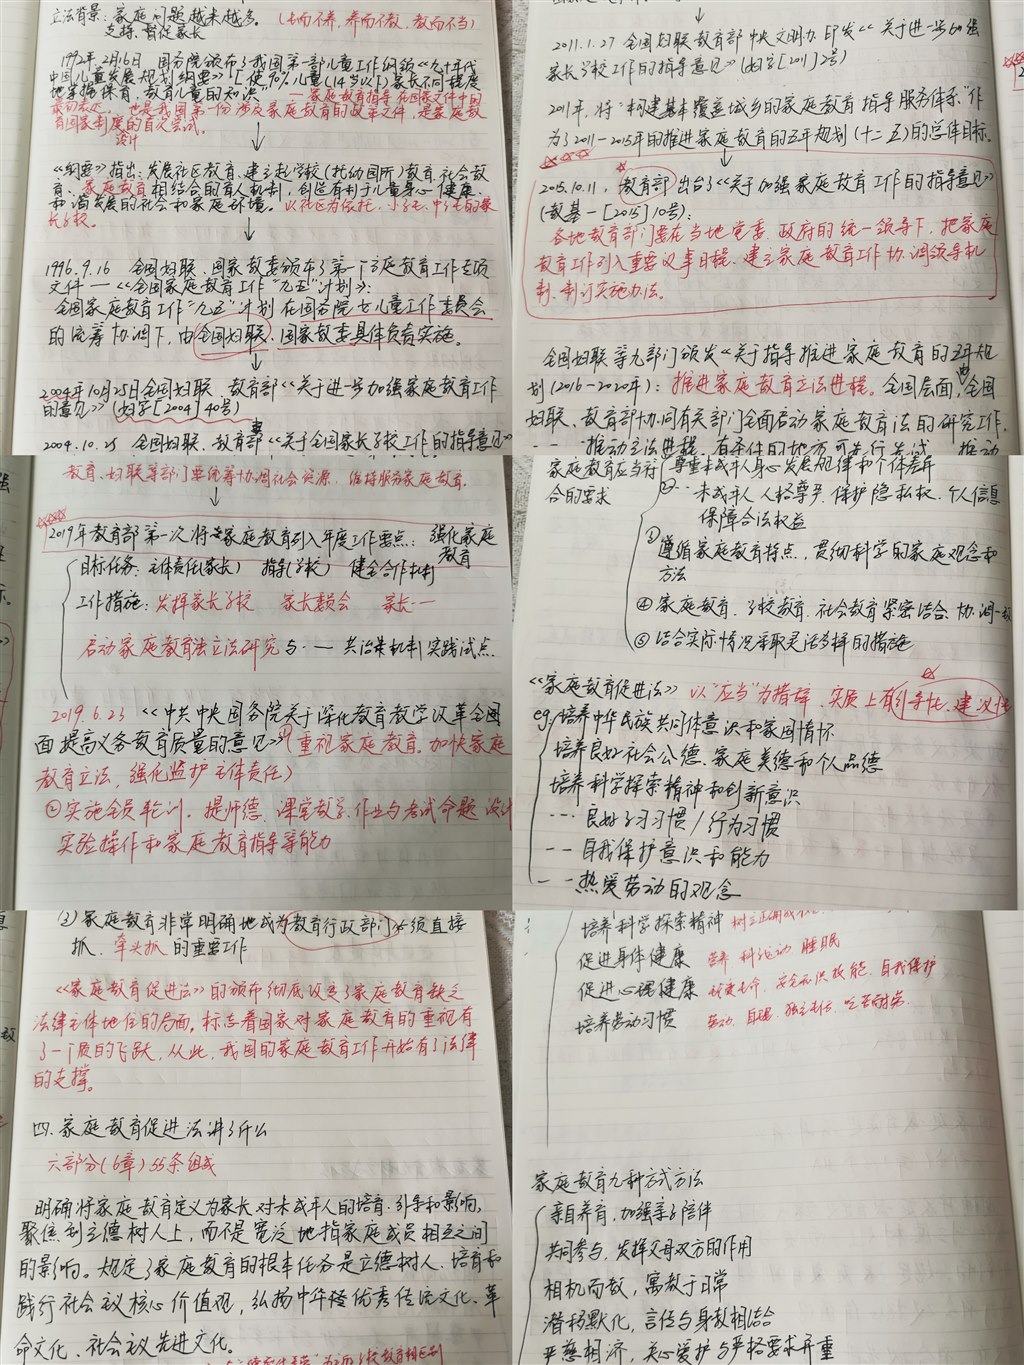 立法背景：家庭问题越来越多。（生而不养，养而不教，教而不当）
支持、督促家长
1992年2月16日 国务院颁布了我国第一部儿童工作纲领《九十年代
中国儿童发展规划纲要》「使90%儿童(14岁以下)家长不同程度
地掌握保育、教育儿童的知识」—家庭教育指导在国家文件中的
最初表述，也是我国第一份涉及家庭教育的政策文件，是家庭教
育国家制度的首次尝试。
设计
《纲要》指出：发展社区教育，建立起学校(托幼园所)教育、社会教
育、家庭教育相结合的育人机制，创造有利于儿童身心健康、
和谐发展的社会和家庭环境。以社区为依托，小学、中学的家
长学校。
1996.9.16 全国妇联、国家教委颁布了第一个家庭教育工作专项
文件—《全国家庭教育工作“九五”计划》：
全国家庭教育工作“九五”计划在国务院妇女儿童工作委员会
的统筹协调下，由全国妇联、国家教委具体负责实施。
2004年10月25日全国妇联、教育部《关于进一步加强家庭教育工作
的意见》(妇字[2004]40号)
2004.10.25 全国妇联、教育部《关于全国家长学校工作的指导意见》
2011.1.27 全国妇联教育部中央文明办印发《关于进一步加强
家长学校工作的指导意见》(妇字[2011]2号)
2011年，将“构建基本覆盖城乡的家庭教育指导服务体系”作
为了2011-2015年的推进家庭教育的五年规划(十二五)的总体目标。
2015.10.11，教育部出台了《关于加强家庭教育工作的指导意见》
(教基一[2015]10号)：
各地教育部门要在当地党委政府的统一领导下，把家庭
教育工作列入重要议事日程，建立家庭教育工作协调领导机
制，制订实施办法。
全国妇联等九部门颁发《关于指导推进家庭教育的五年规
划(2016-2020年)：推进家庭教育立法进程。全国层面，由全国
妇联、教育部协同有关部门全面启动家庭教育法的研究工作，
---推动立法进程，有条件的地方可先行先试，推动
教育、妇联等部门要统筹协调社会资源，维持服务家庭教育。
2019年教育部第一次将家庭教育列入年度工作要点：强化家庭
教育
目标任务：主体责任(家长) 指导(学校) 健全合作机制
工作措施：发挥家长学校 家长委员会 家长---
启动家庭教育法立法研究与---共治共机制实践试点.
2019.6.23《中共中央国务院关于深化教育教学改革全国
面提高义务教育质量的意见》(①重视家庭教育，加快家庭
教育立法，强化监护主体责任)
②实施全员轮训，提师德、课堂教学、作业与考试命题设计
实验操作和家庭教育指导等能力
家庭教育应当符
合的要求
尊重未成年人身心发展规律和个体差异
②--未成年人人格尊严，保护隐私权、个人信息
保障合法权益
③遵循家庭教育特点，贯彻科学的家庭观念和
方法
④家庭教育、学校教育、社会教育紧密结合、协调一致
⑤结合实际情况采取灵活多样的措施
《家庭教育促进法》以“应当”为措辞，实质上有引导性、建议性
eg.培养中华民族共同体意识和家国情怀
培养良好社会公德、家庭美德和个人品德
培养科学探索精神和创新意识
---良好学习习惯/行为习惯
---自我保护意识和能力
---热爱劳动的观念
(3)家庭教育非常明确地成为教育行政部门必须直接
抓、牵头抓的重要工作
《家庭教育促进法》的颁布彻底改变了家庭教育缺乏
法律主体地位的局面。标志着国家对家庭教育的重视有
了一个质的飞跃，从此，我国的家庭教育工作开始有了法律
的支撑。
四、家庭教育促进法讲了什么
六部分(6章)55条组成
明确将家庭教育定义为家长对未成年人的培育、引导和影响，
聚焦到立德树人上，而不是宽泛地指家庭成员相互之间
的影响。规定了家庭教育的根本任务是立德树人、培育和
践行社会主义核心价值观，弘扬中华优秀传统文化、革
命文化、社会主义先进文化。
培养科学探索精神
促进身体健康 营养 科学运动 睡眠
促进心理健康 珍爱生命、安全意识技能、自我保护
培养劳动习惯 劳动、自理、独立生活、吃苦耐劳
家庭教育九种方式方法
亲自养育，加强亲子陪伴
共同参与，发挥父母双方的作用
相机而教，寓教于日常
潜移默化，言传与身教相结合
严慈相济，关心爱护与严格要求并重